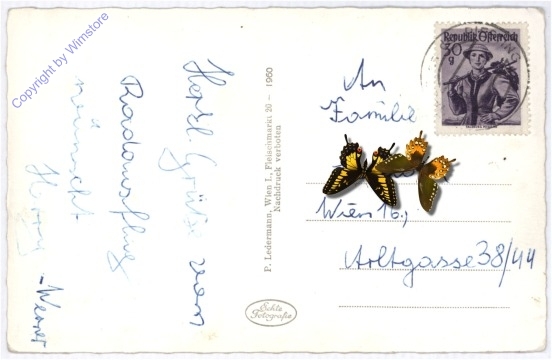 Copyright by Wimstore
Herzl. Grüße vom
Radausflug
wünscht
Werner
P. Ledermann, Wien I., Fleischmarkt 20 – 1960
Nachdruck verboten
Echte
Fotografie
Republik Österreich
30
g
An
Familie
Wien 16.,
Arltgasse 38/44